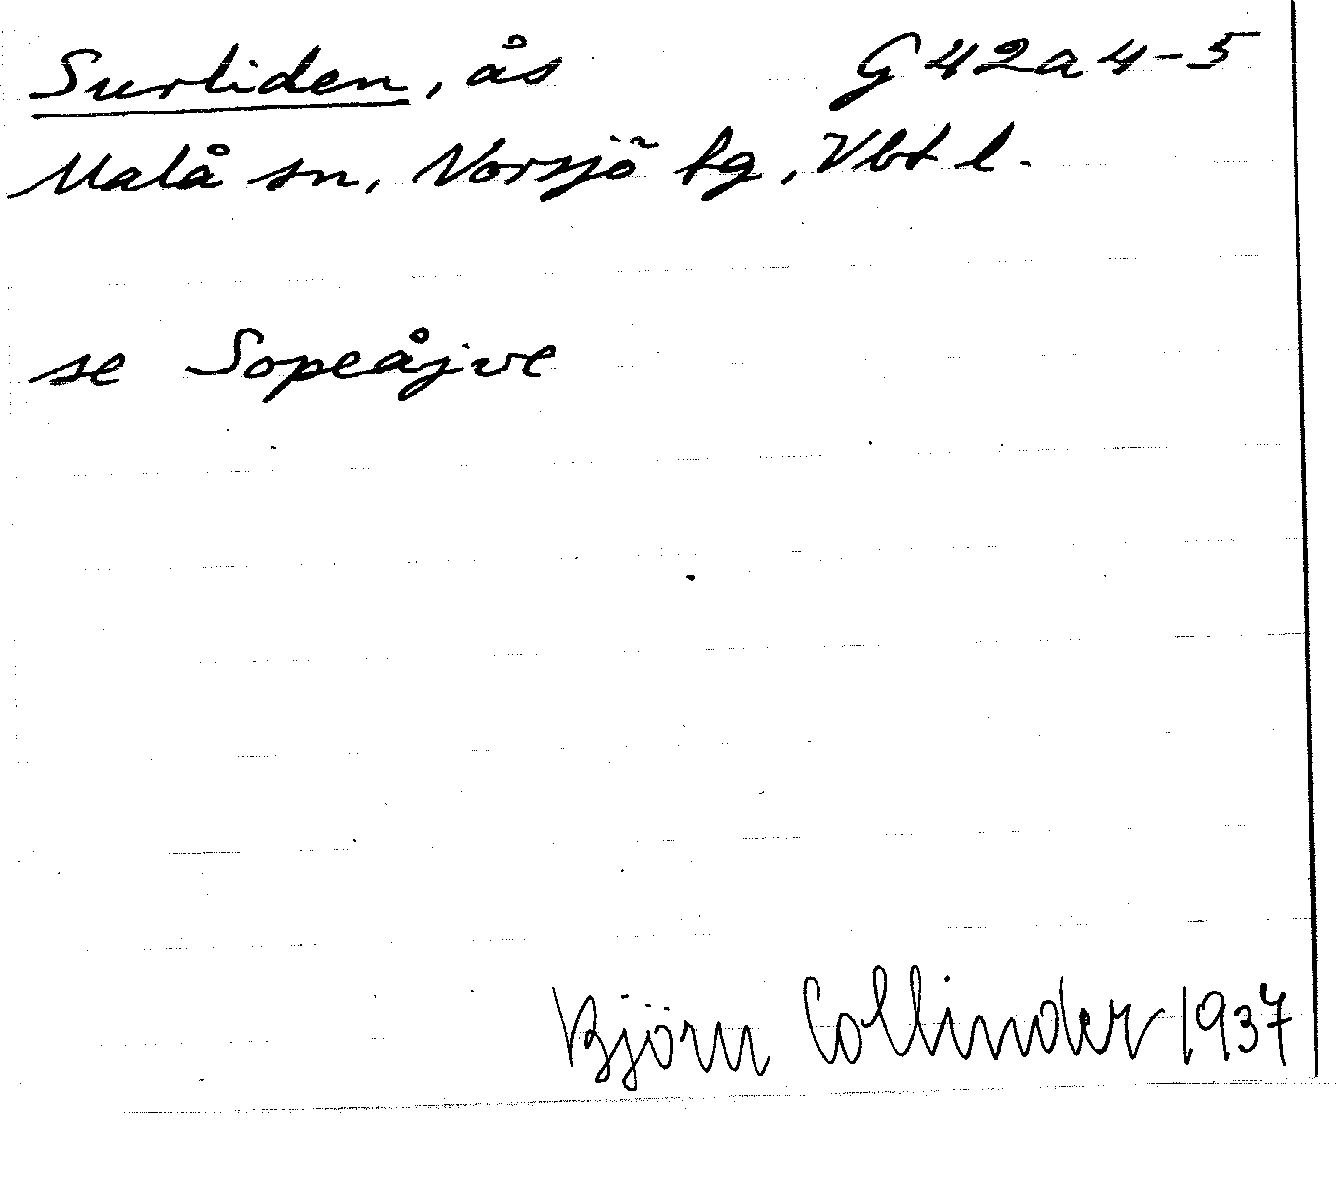 Surliden, ås G42a4-5
Malå sn, Norsjö tg, Vbt l.
se Sopeåjve
Björn Collinder 1937